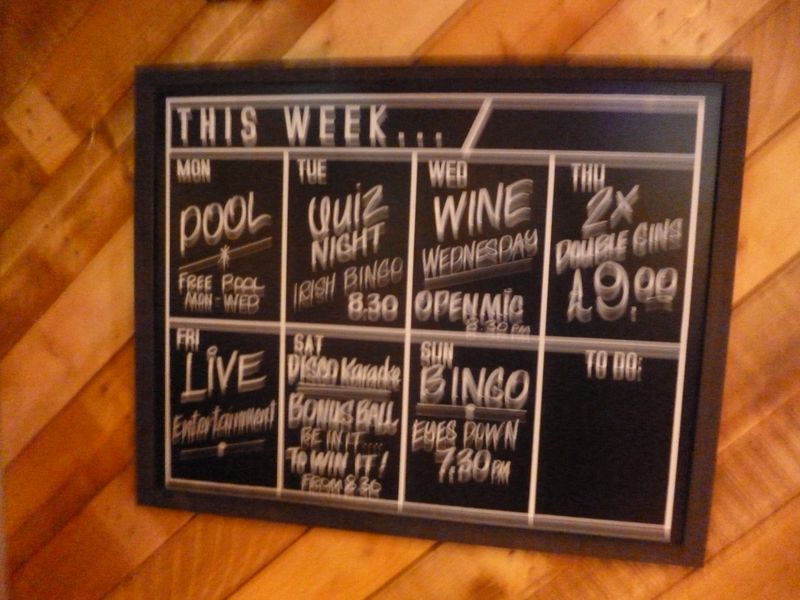 THIS WEEK... /
MON
POOL
FREE POOL
MON - WED
TUE
QUIZ
NIGHT
IRISH BINGO
8.30
WED
WINE
WEDNESDAY
OPEN MIC
8.30 PM
THU
2X
DOUBLE GINS
£9.00
FRI
LIVE
Entertainment
SAT
DISCO Karaoke
BONUS BALL
BE IN IT....
TO WIN IT!
FROM 8.30
SUN
BINGO
EYES DOWN
7.30 PM
TO DO: